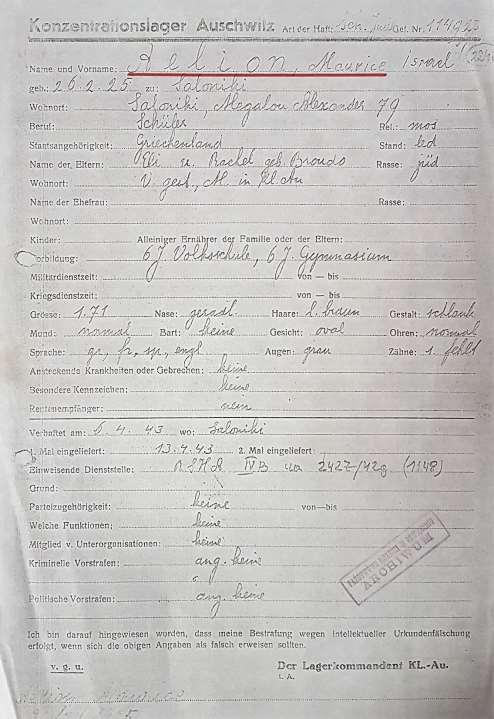 Konzentrationslager Auschwitz Art der Haft: Gef. Nr.: 114923
Name und Vorname: Aelion, Maurice Israel
geb.: 26.2.25 zu: Saloniki
Wohnort: Saloniki, Megalou Alexander 79
Beruf: Schüler Rel.: mos
Staatsangehörigkeit: Griechenland Stand: led
Name der Eltern: Eli u. Rachel geb. Broudo Rasse: jüd
Wohnort: V. gest., M. in Kl. Au
Name der Ehefrau: Rasse:
Wohnort:
Kinder: Alleiniger Ernährer der Familie oder der Eltern:
Vorbildung: 6 J. Volksschule, 6 J. Gymnasium
Militärdienstzeit: von — bis
Kriegsdienstzeit: von — bis
Grösse: 1.71 Nase: geradl. Haare: d. braun Gestalt: schlank
Mund: normal Bart: keine Gesicht: oval Ohren: normal
Sprache: gr, fr, sp, engl Augen: grau Zähne: 1 fehlt
Ansteckende Krankheiten oder Gebrechen: keine
Besondere Kennzeichen: keine
Rentenempfänger: nein
Verhaftet am: 6.4.43 wo: Saloniki
1. Mal eingeliefert: 13.4.43 2. Mal eingeliefert
Einweisende Dienststelle: RSHA IVB 2427/42g (1148)
Grund:
Parteizugehörigkeit: keine von—bis
Welche Funktionen: keine
Mitglied v. Unterorganisationen: keine
Kriminelle Vorstrafen: ang. keine
Politische Vorstrafen: ang. keine
Ich bin darauf hingewiesen worden, dass meine Bestrafung wegen intellektueller Urkundenfälschung
erfolgt, wenn sich die obigen Angaben als falsch erweisen sollten.
v. g. u. Der Lagerkommandant KL-Au.
I. A.
Maurice